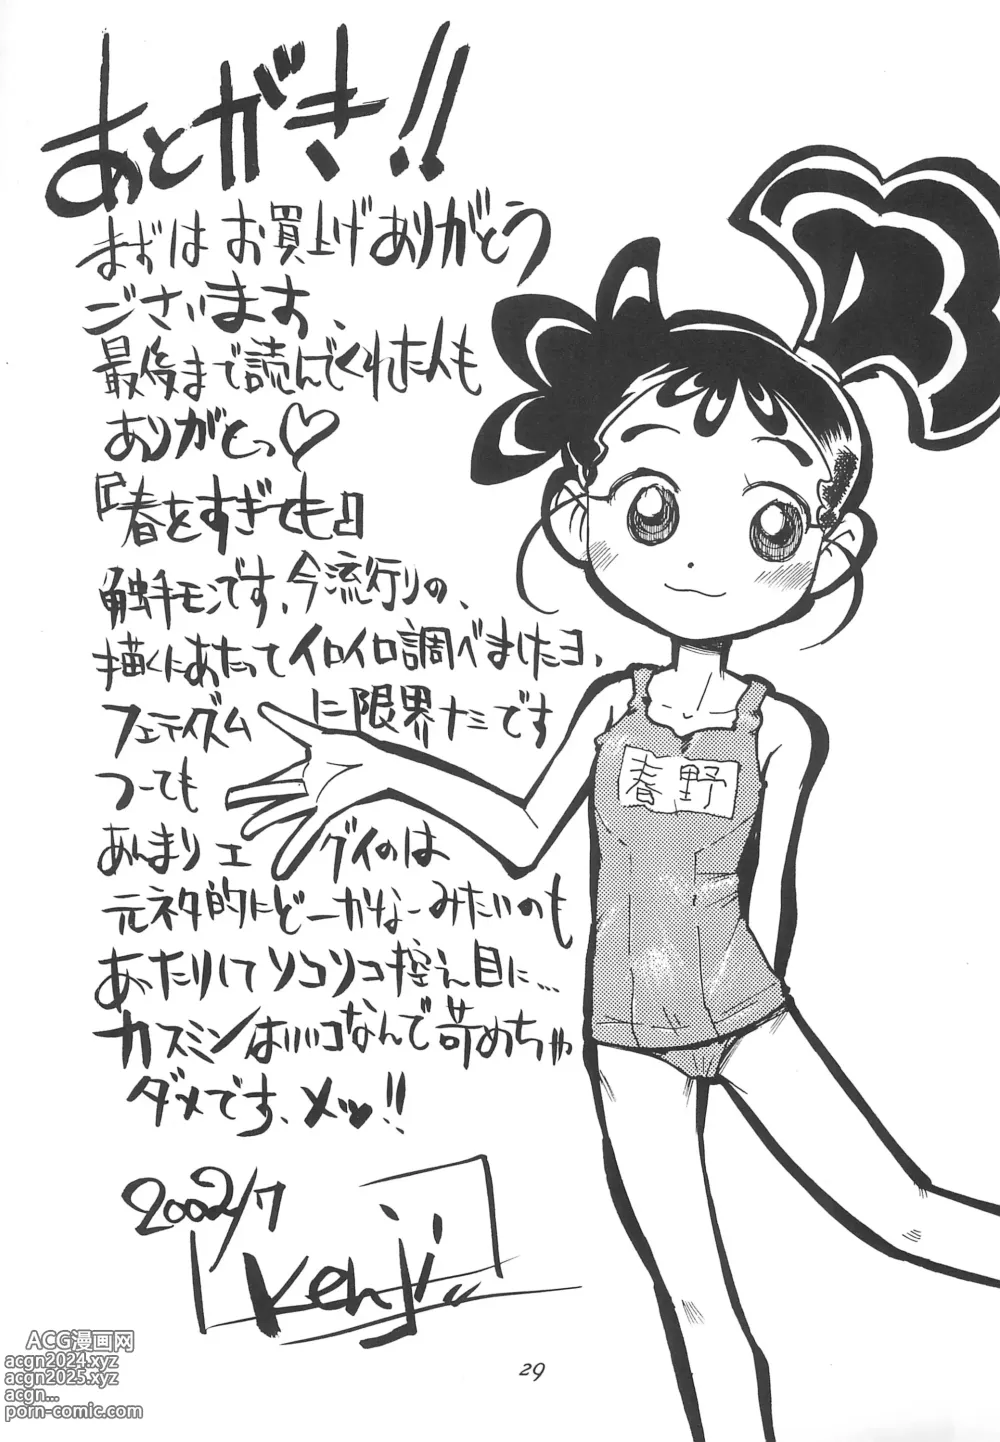 あとがき!!
まずはお買上げありがとう
ございます、
最後まで読んでくれた人も
ありがとっ♡
『春をすぎても』
触手モンです、今流行りの、
描くにあたってイロイロ調べましたヨ、
フェティズム に限界ナミです
つーても
あんまりエグイのは
元ネタ的にどーかなーみたいのも
あったりしてソコソコ控え目に…
カスミンはイイコなんで苛めちゃ
ダメです、メッ!!
2002/7
Kenji
春野
29
ACG漫画网
acgn2024.xyz
acgn2025.xyz
acgn...
porn-comic.com/